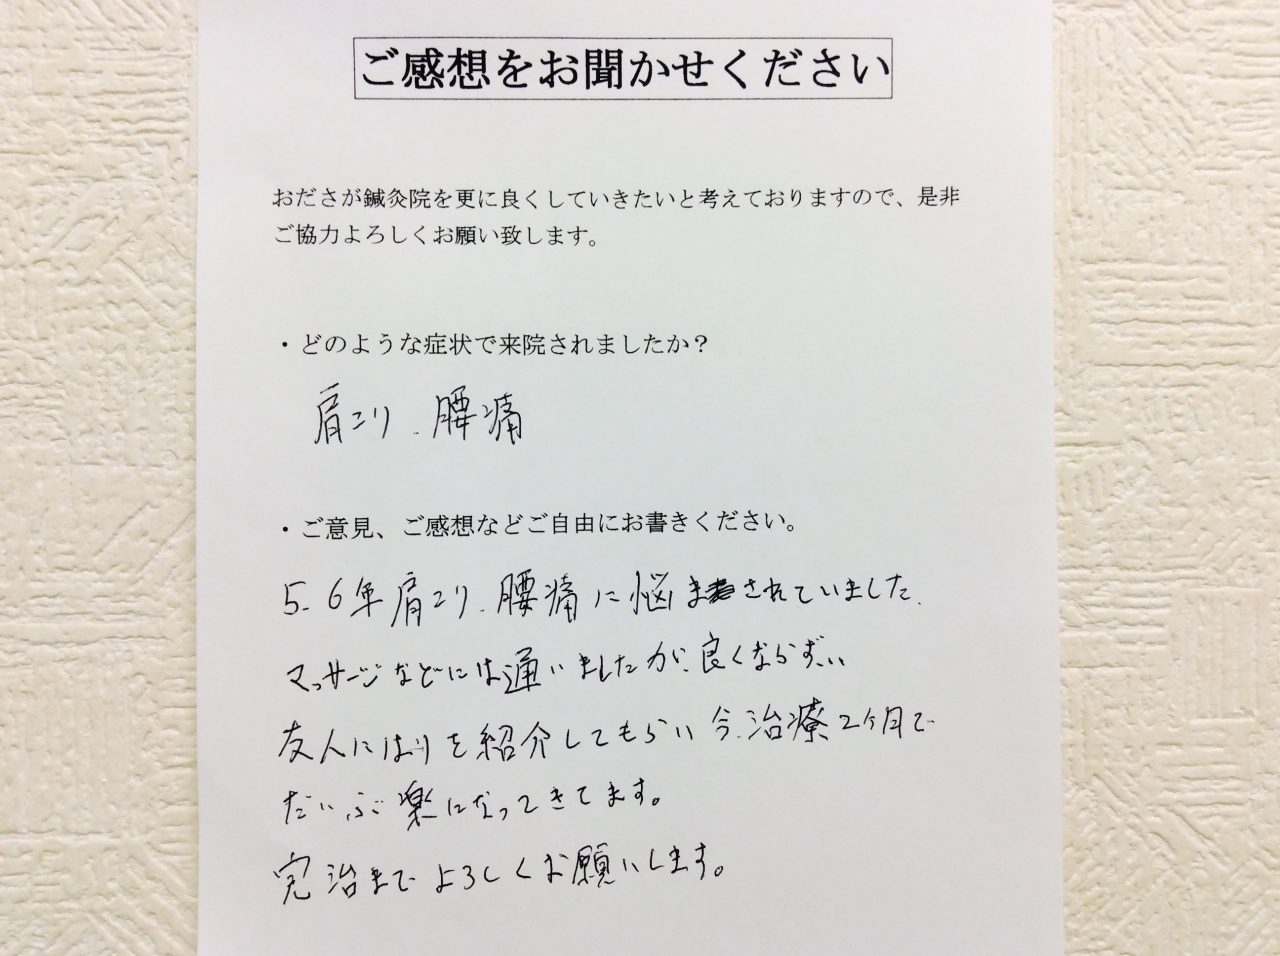 ご感想をお聞かせください
おださが鍼灸院を更に良くしていきたいと考えておりますので、是非
ご協力よろしくお願い致します。
・どのような症状で来院されましたか？
肩こり、腰痛
・ご意見、ご感想などご自由にお書きください。
5、6年肩こり、腰痛に悩まされていました。
マッサージなどには通いましたが、良くならず、、
友人にはりを紹介してもらい今、治療2ヶ月で
だいぶ楽になってきてます。
完治までよろしくお願いします。